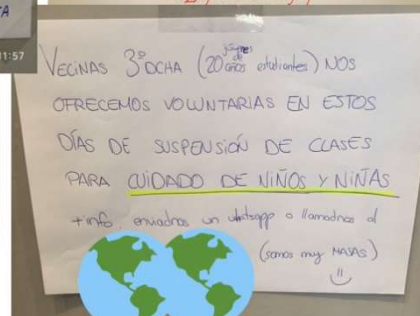 11:57
VECINAS 3º DCHA (20 años jóvenes de estudiantes) NOS
OFRECEMOS VOLUNTARIAS EN ESTOS
DÍAS DE SUSPENSIÓN DE CLASES
PARA CUIDADO DE NIÑOS Y NIÑAS
+info, enviadnos un whatsapp o llamadnos al
(somos muy MAJAS)